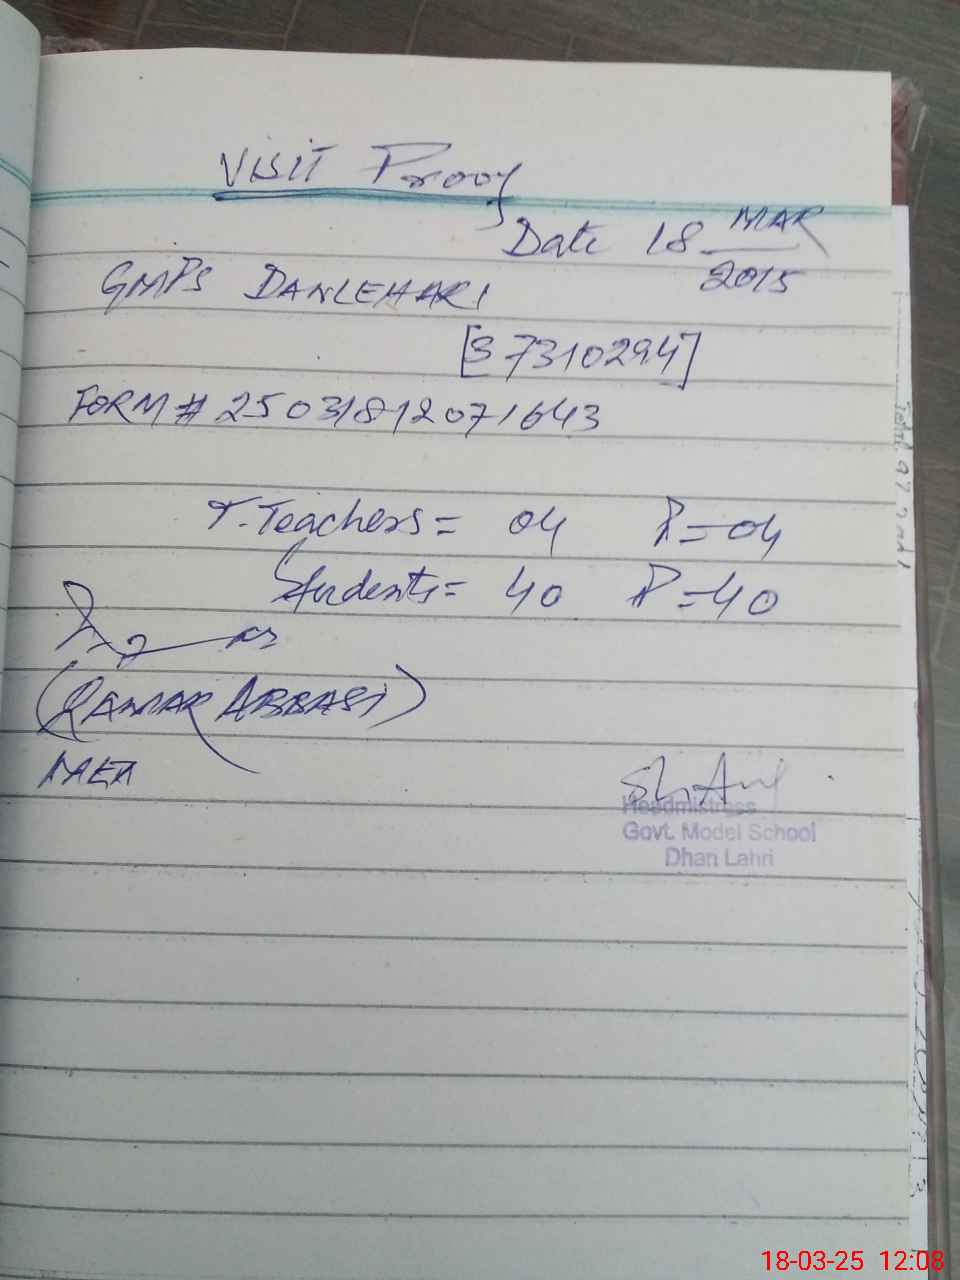 VISIT Proof
Date 18 MAR
2015
GMPS DANLEHARI
[37310294]
FORM # 25031812071643
T. Teachers = 04 P = 04
Students = 40 P = 40
(QAMAR ABBASI)
MEA
Headmistress
Govt. Model School
Dhan Lahri
18-03-25 12:08